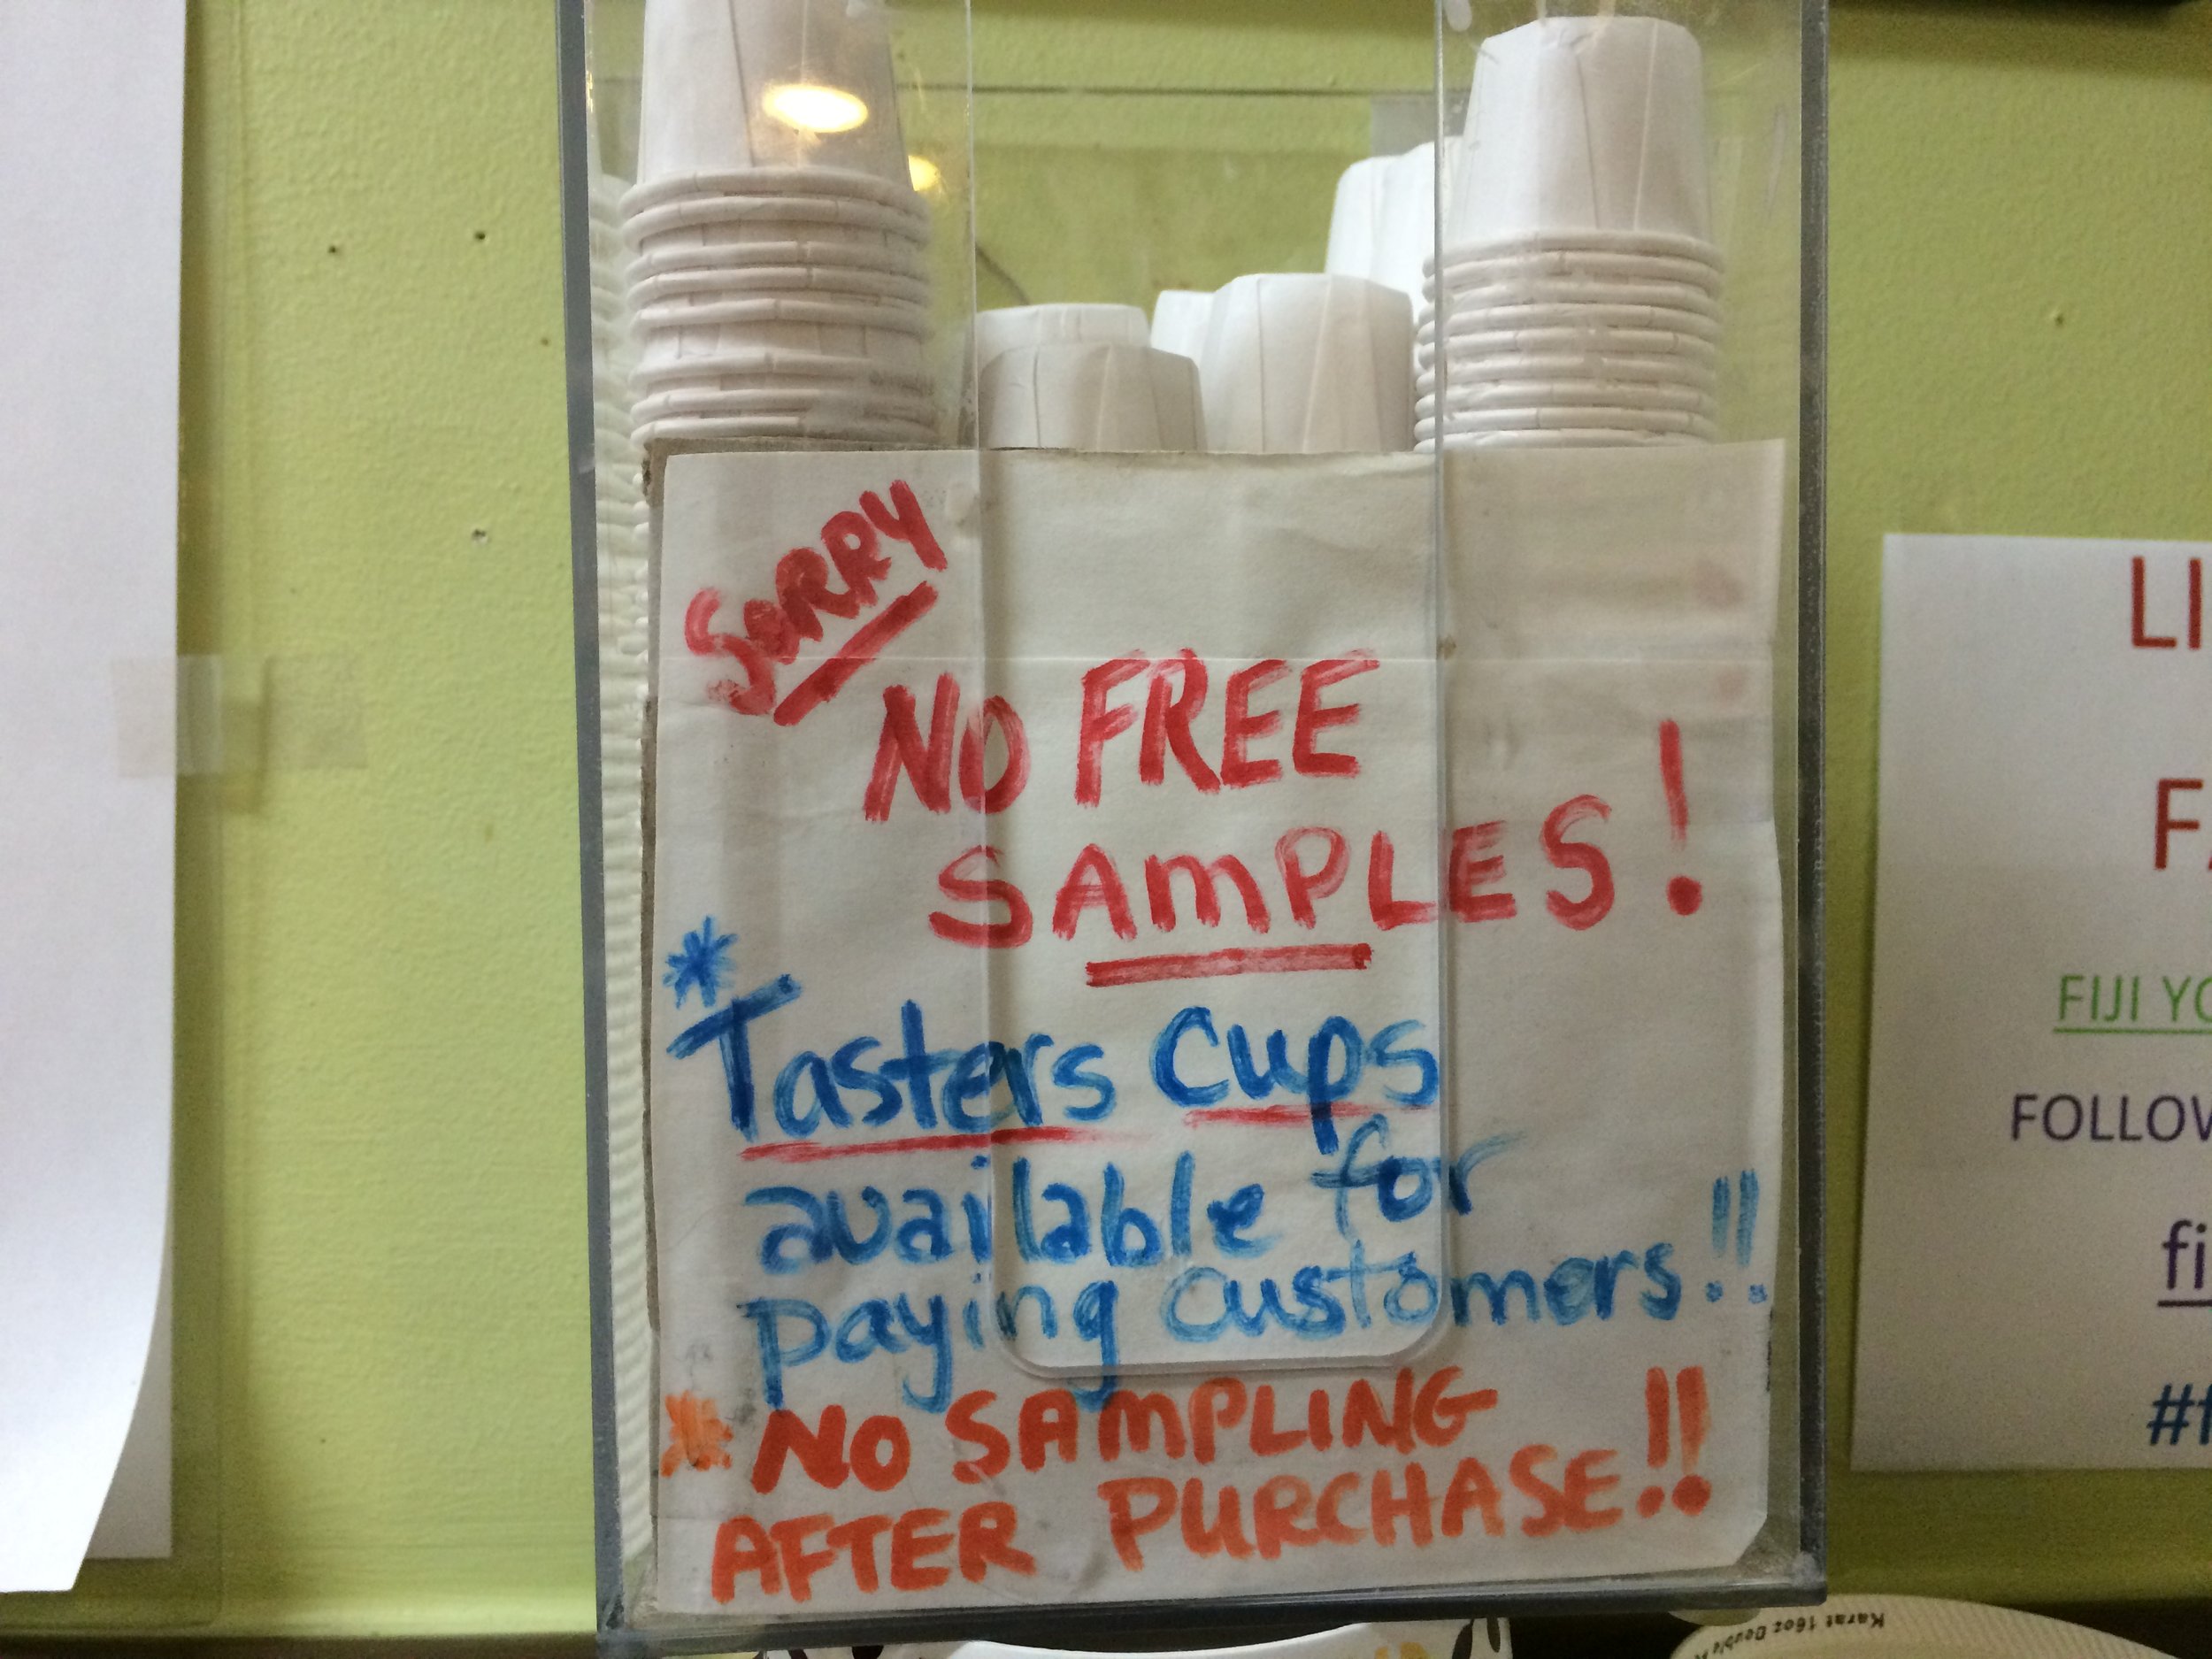 SORRY
NO FREE
SAMPLES!
*Tasters Cups
available for
paying customers!!
* NO SAMPLING
AFTER PURCHASE!!
FIJI
Karat 16oz